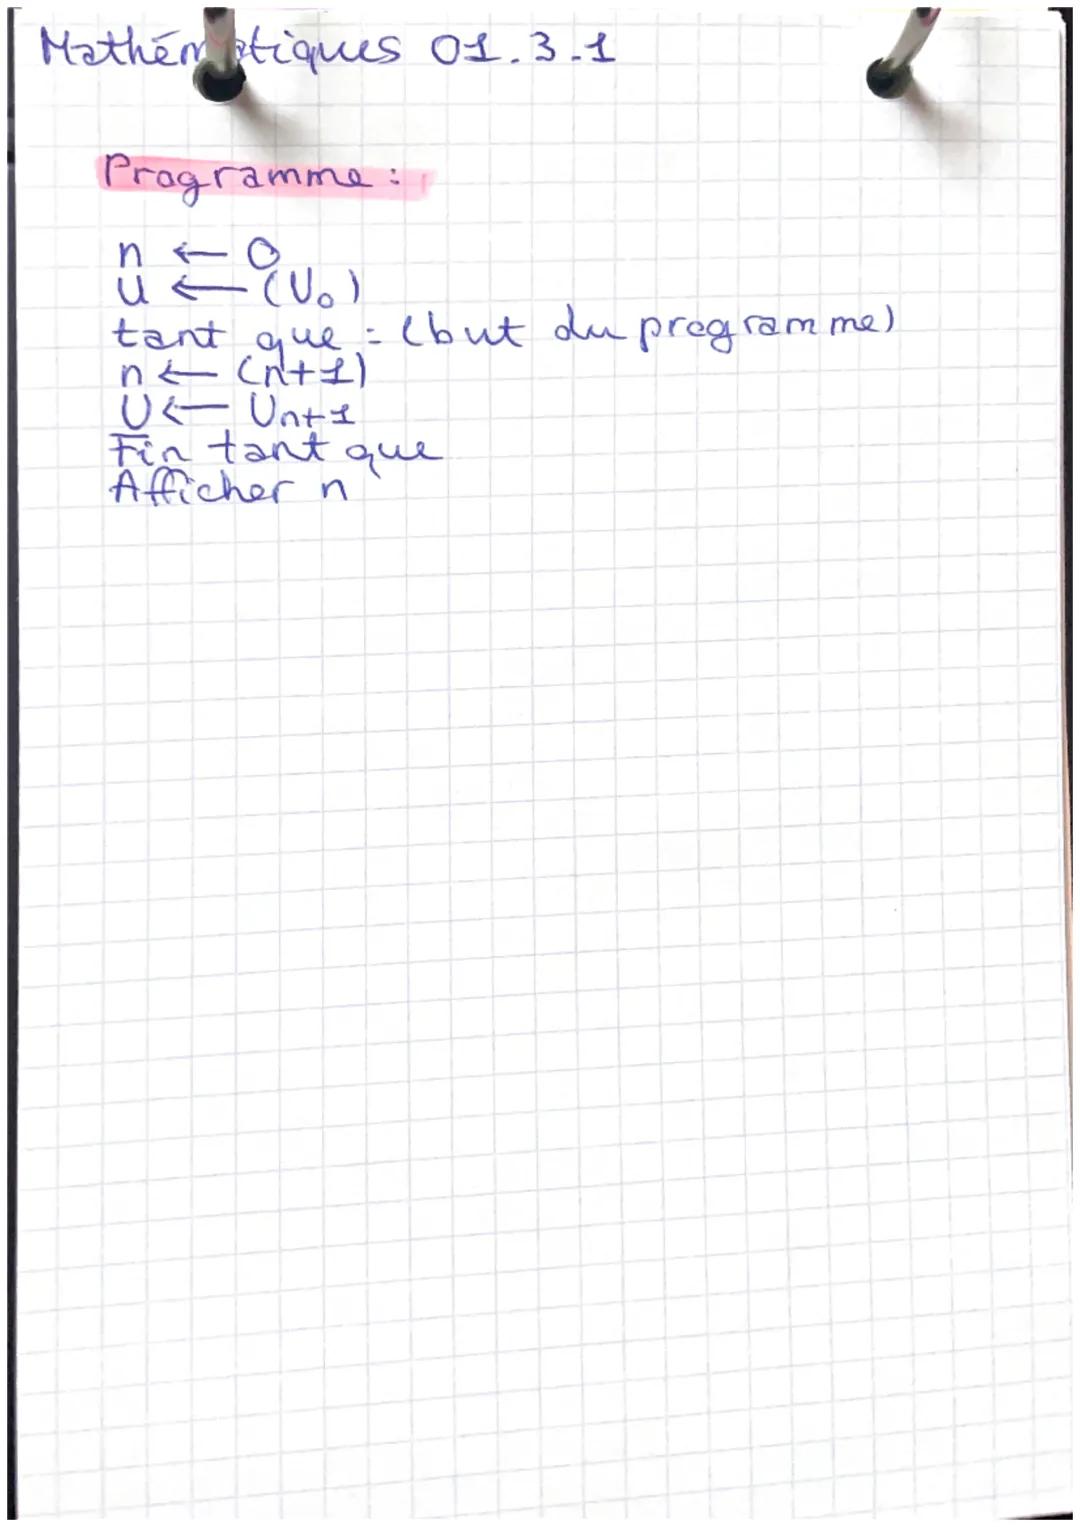 Mathématiques 01.3.1
Programme :
n ← 0
u ← (U₀)
tant que : (but du programme)
n ← (n+1)
U ← Un+1
Fin tant que
Afficher n